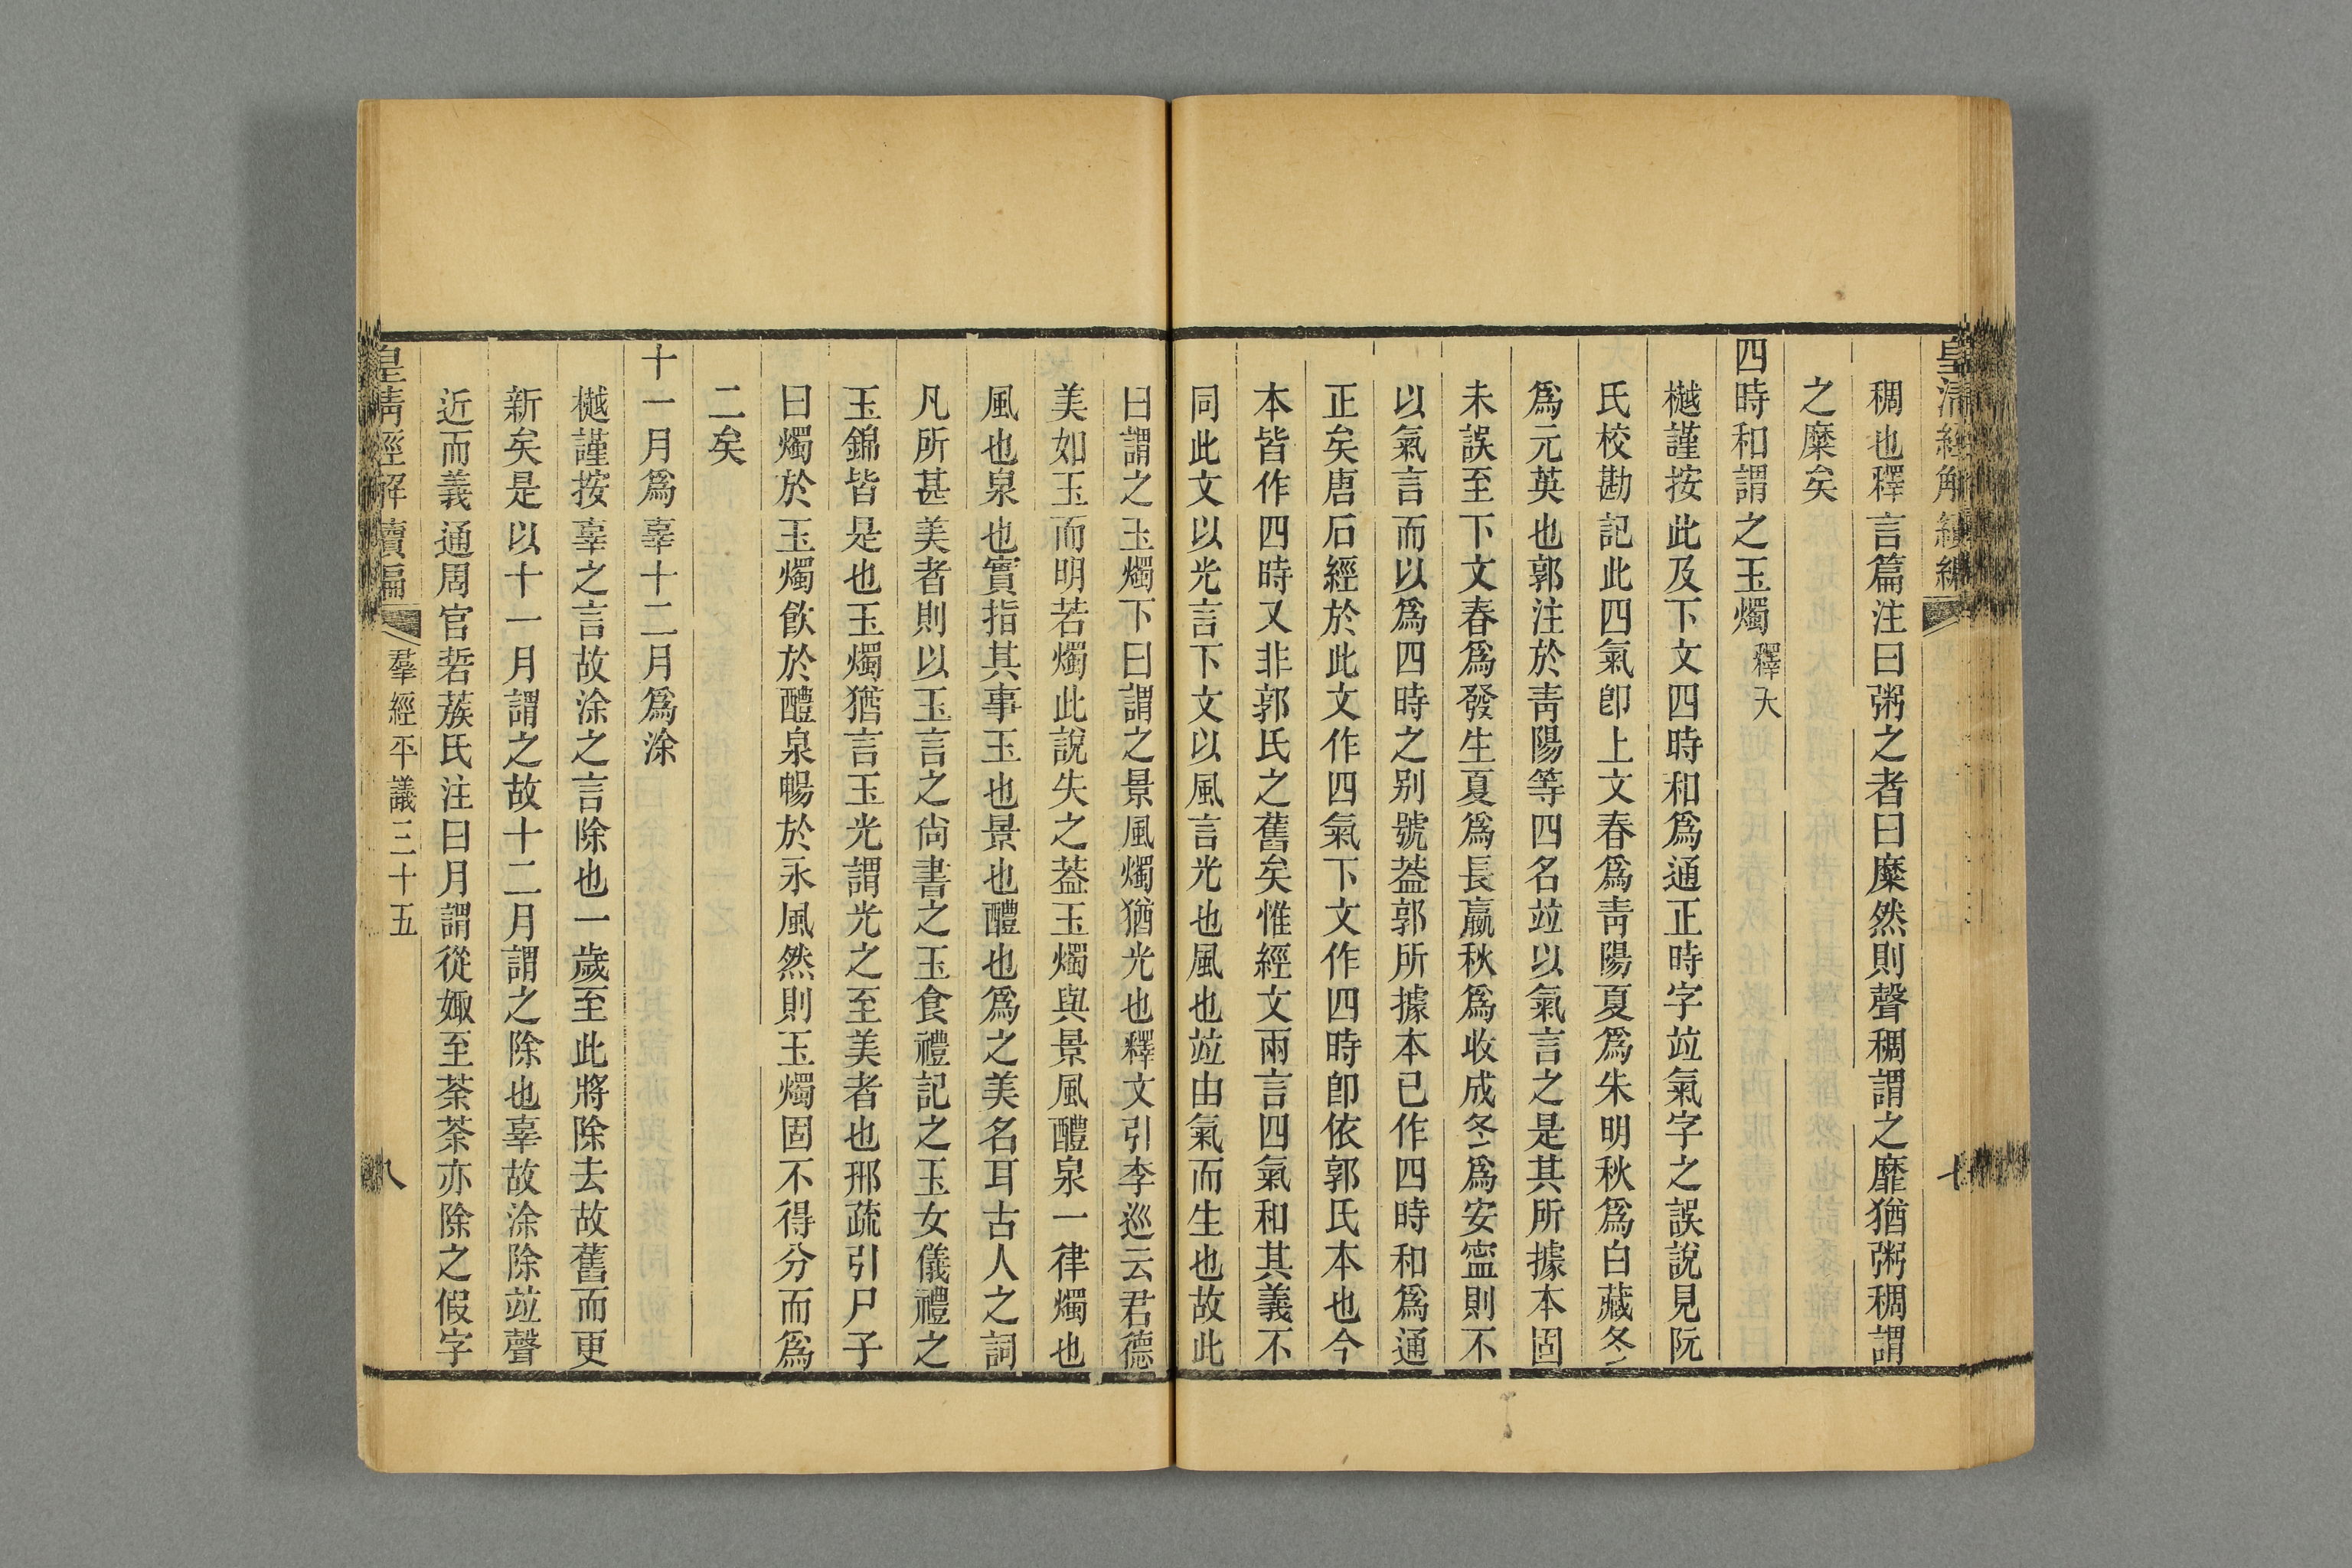 皇清經解續編
七
稠也釋言篇注曰粥之者曰糜然則聲稠謂之靡猶粥稠謂
之糜矣
四時和謂之玉燭 釋天
樾謹按此及下文四時和爲通正時字竝氣字之誤說見阮
氏校勘記此四氣卽上文春爲青陽夏爲朱明秋爲白藏冬
爲元英也郭注於青陽等四名竝以氣言之是其所據本固
未誤至下文春爲發生夏爲長嬴秋爲收成冬爲安寍則不
以氣言而以爲四時之别號葢郭所據本已作四時和爲通
正矣唐石經於此文作四氣下文作四時卽依郭氏本也今
本皆作四時又非郭氏之舊矣惟經文兩言四氣和其義不
同此文以光言下文以風言光也風也竝由氣而生也故此
曰謂之玉燭下曰謂之景風燭猶光也釋文引李巡云君德
美如玉而明若燭此說失之葢玉燭與景風醴泉一律燭也
風也泉也實指其事玉也景也醴也爲之美名耳古人之詞
凡所甚美者則以玉言之尙書之玉食禮記之玉女儀禮之
玉錦皆是也玉燭猶言玉光謂光之至美者也邢疏引尸子
曰燭於玉燭飮於醴泉暢於永風然則玉燭固不得分而爲
二矣
十一月爲辜十二月爲涂
樾謹按辜之言故涂之言除也一歲至此將除去故舊而更
新矣是以十一月謂之故十二月謂之除也辜故涂除竝聲
近而義通周官硩蔟氏注曰月謂從娵至荼荼亦除之假字
皇清經解續編
羣經平議三十五
八